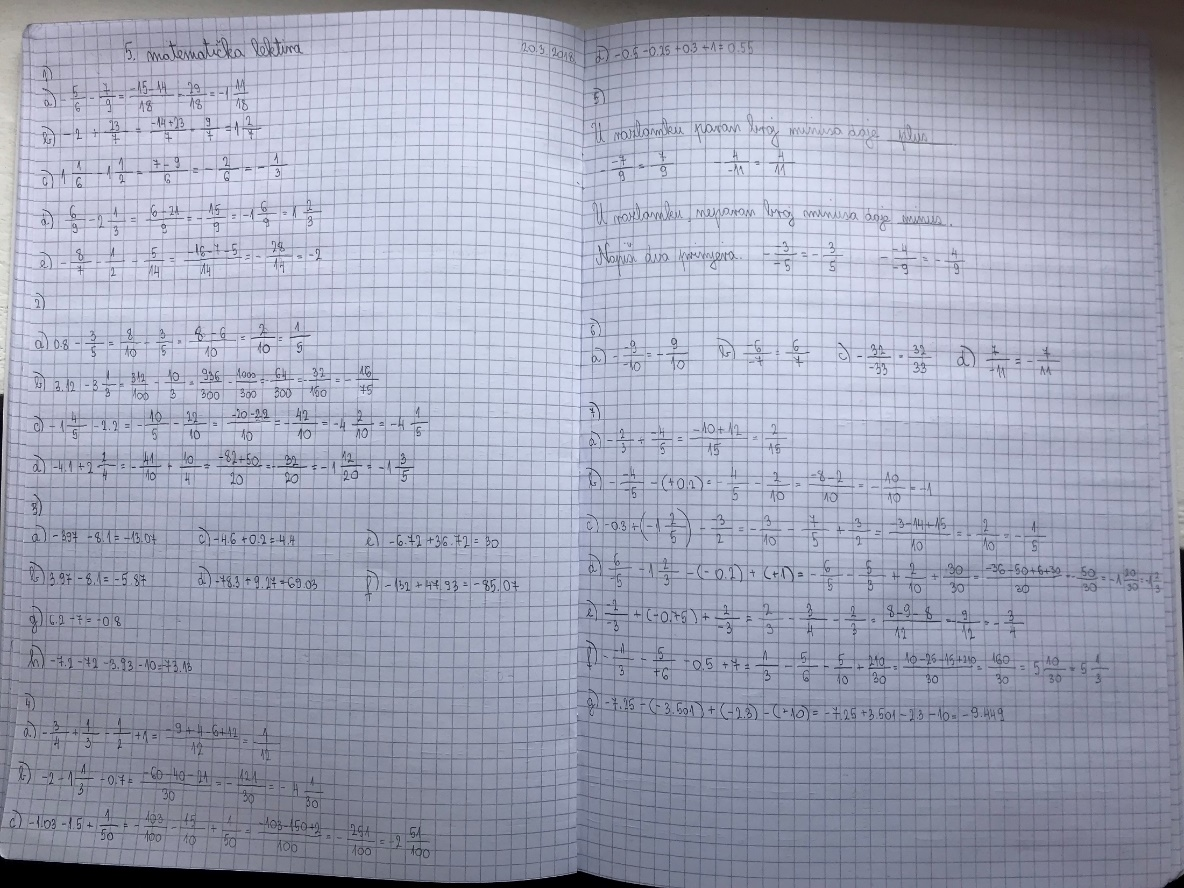 5. matematička lektira
20.3.2018.
1)
a) -5/6 - 7/9 = (-15-14)/18 = 29/18 = -1 11/18
b) -2 + 23/7 = (-14+23)/7 = 9/7 = 1 2/7
c) 1 1/6 - 1 1/2 = (7-9)/6 = -2/6 = -1/3
d) 6/9 - 2 1/3 = (6-21)/9 = -15/9 = -1 6/9 = 1 2/3
e) -8/7 - 1/2 - 5/14 = (-16-7-5)/14 = -28/14 = -2
2)
a) 0.8 - 3/5 = 8/10 - 3/5 = (8-6)/10 = 2/10 = 1/5
b) 3.12 - 3 1/3 = 312/100 - 10/3 = 936/300 - 1000/300 = -64/300 = -32/150 = -16/75
c) -1 4/5 - 2.2 = -10/5 - 22/10 = (-20-22)/10 = -42/10 = -4 2/10 = -4 1/5
d) -4.1 + 2 2/4 = -41/10 + 10/4 = (-82+50)/20 = -32/20 = -1 12/20 = -1 3/5
3)
a) -397 - 8.1 = -13.07 c) -4.6 + 0.2 = 4.4 e) -6.72 + 36.72 = 30
b) 3.97 - 8.1 = -5.87 d) -78.3 + 9.27 = 69.03 f) -132 + 47.93 = -85.07
g) 6.2 - 7 = -0.8
h) -7.2 - 72 - 3.93 - 10 = 73.13
4)
a) -3/4 + 1/3 - 1/2 + 1 = (-9+4-6+12)/12 = 1/12
b) -2 - 1 1/3 - 0.7 = (-60-40-21)/30 = -121/30 = -4 1/30
c) -1.03 - 1.5 + 1/50 = -103/100 - 15/10 + 1/50 = (-103-150+2)/100 = -251/100 = -2 51/100
d) -0.5 - 0.25 + 0.3 + 1 = 0.55
5)
U razlomku paran broj minusa daje plus
- -7/9 = 7/9 - 4/-11 = 4/11
U razlomku, neparan broj minusa daje minus.
Napiši dva primjera. - -3/-5 = -3/5 - -4/-9 = -4/9
6)
a) - -9/-10 = -9/10 b) -6/-7 = 6/7 c) - 32/-33 = 32/33 d) 7/-11 = -7/11
7)
a) -2/3 + -4/5 = (-10+12)/15 = 2/15
b) - -4/-5 - (+0.2) = -4/5 - 2/10 = (-8-2)/10 = -10/10 = -1
c) -0.3 + (-1 2/5) - -3/2 = -3/10 - 7/5 + 3/2 = (-3-14+15)/10 = -2/10 = -1/5
d) 6/-5 - 1 2/3 - (-0.2) + (+1) = -6/5 - 5/3 + 2/10 + 30/30 = (-36-50+6+30)/30 = -50/30 = -1 20/30 = 1 2/3
e) -2/-3 + (-0.75) + 2/-3 = 2/3 - 3/4 - 2/3 = (8-9-8)/12 = -9/12 = -3/4
f) - -1/3 - 5/+6 - 0.5 + 7 = 1/3 - 5/6 - 5/10 + 210/30 = (10-25-15+210)/30 = 160/30 = 5 10/30 = 5 1/3
g) -7.25 - (-3.501) + (-2.3) - (+10) = -7.25 + 3.501 - 2.3 - 10 = -9.449